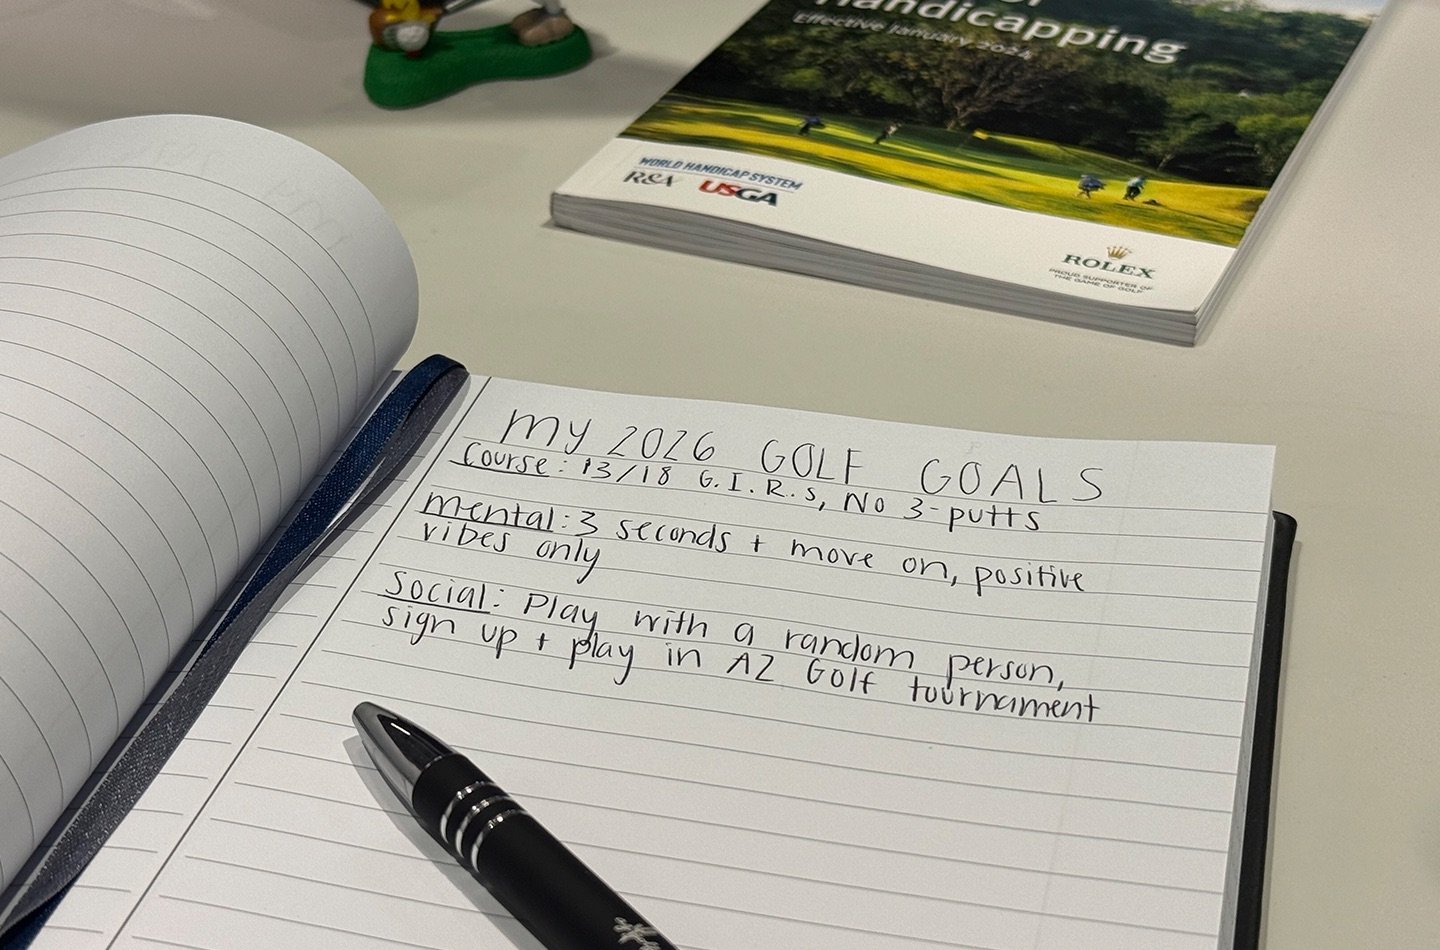 Handicapping
Effective January 2024
WORLD HANDICAP SYSTEM
R&A USGA
ROLEX
PROUD SUPPORTER OF
THE GAME OF GOLF
MY 2026 GOLF GOALS
Course: 13/18 G.I.R.s, No 3-putts
Mental: 3 seconds + move on, positive
vibes only
Social: Play with a random person,
sign up + play in AZ Golf tournament